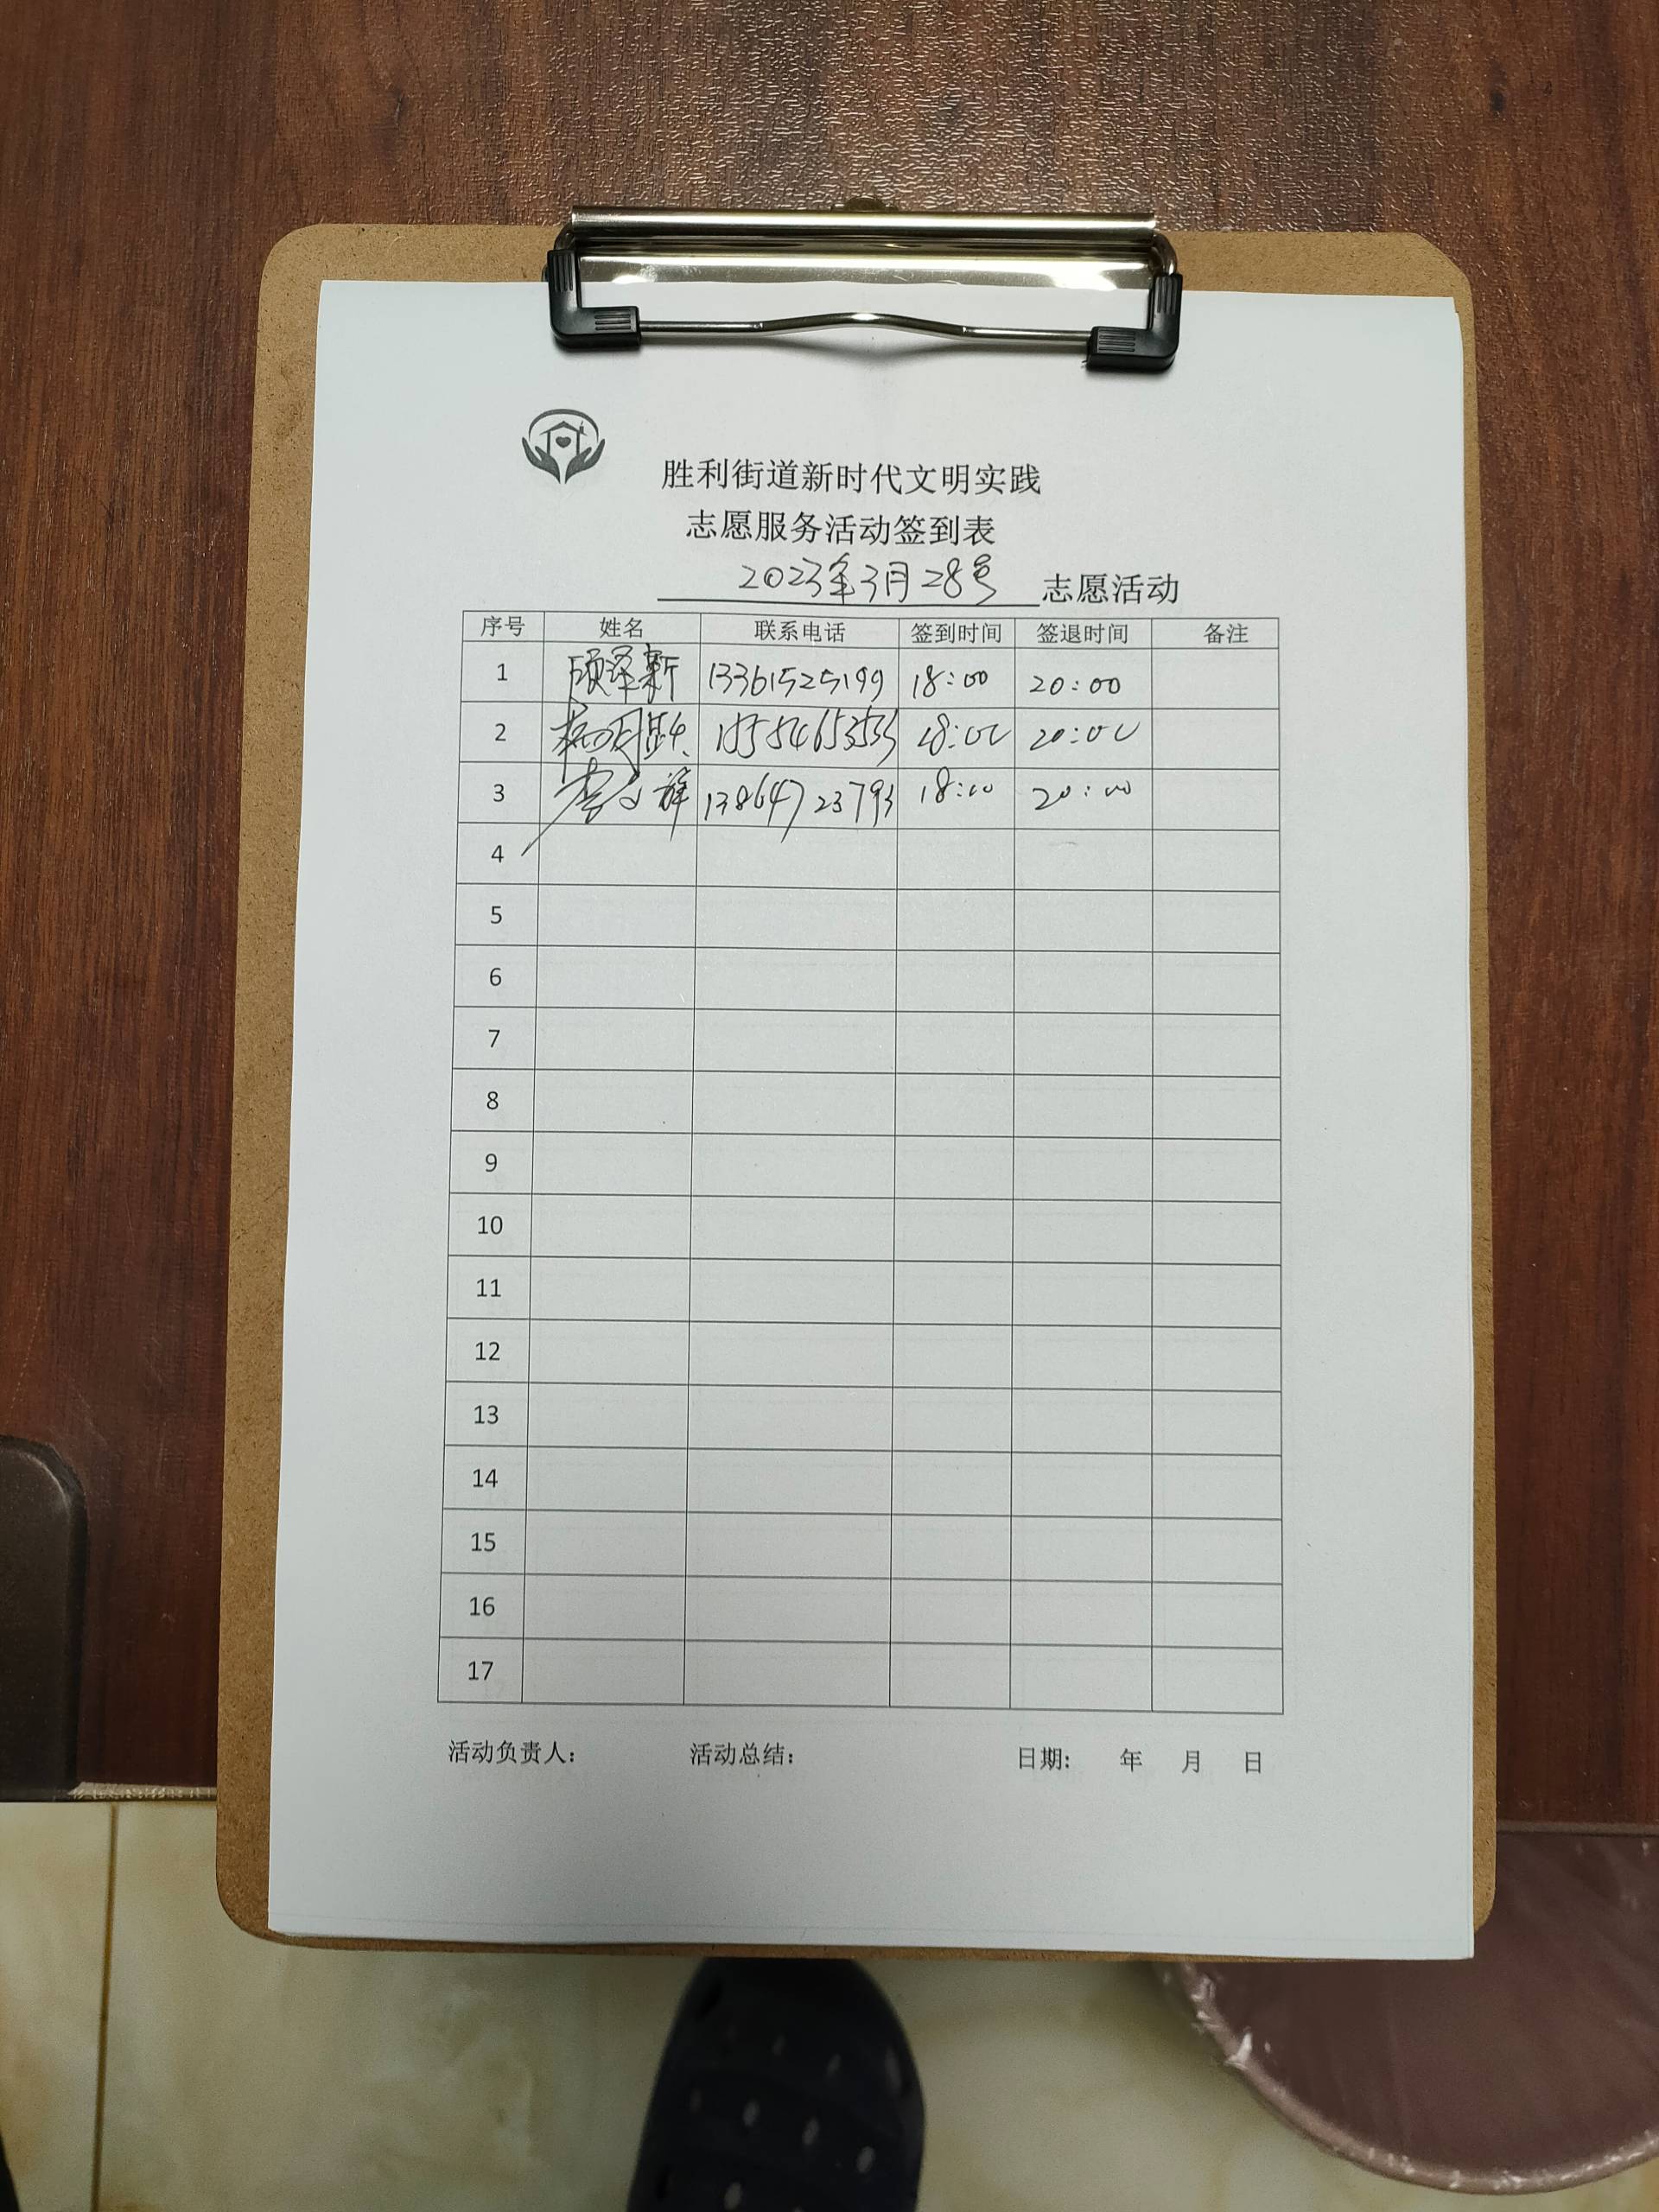 胜利街道新时代文明实践
志愿服务活动签到表
2023年3月28号 志愿活动
序号 姓名 联系电话 签到时间 签退时间 备注
1 顾泽新 13361525199 18:00 20:00
2 18:00 20:00
3 13864723793 18:00 20:00
4
5
6
7
8
9
10
11
12
13
14
15
16
17
活动负责人: 活动总结: 日期: 年 月 日